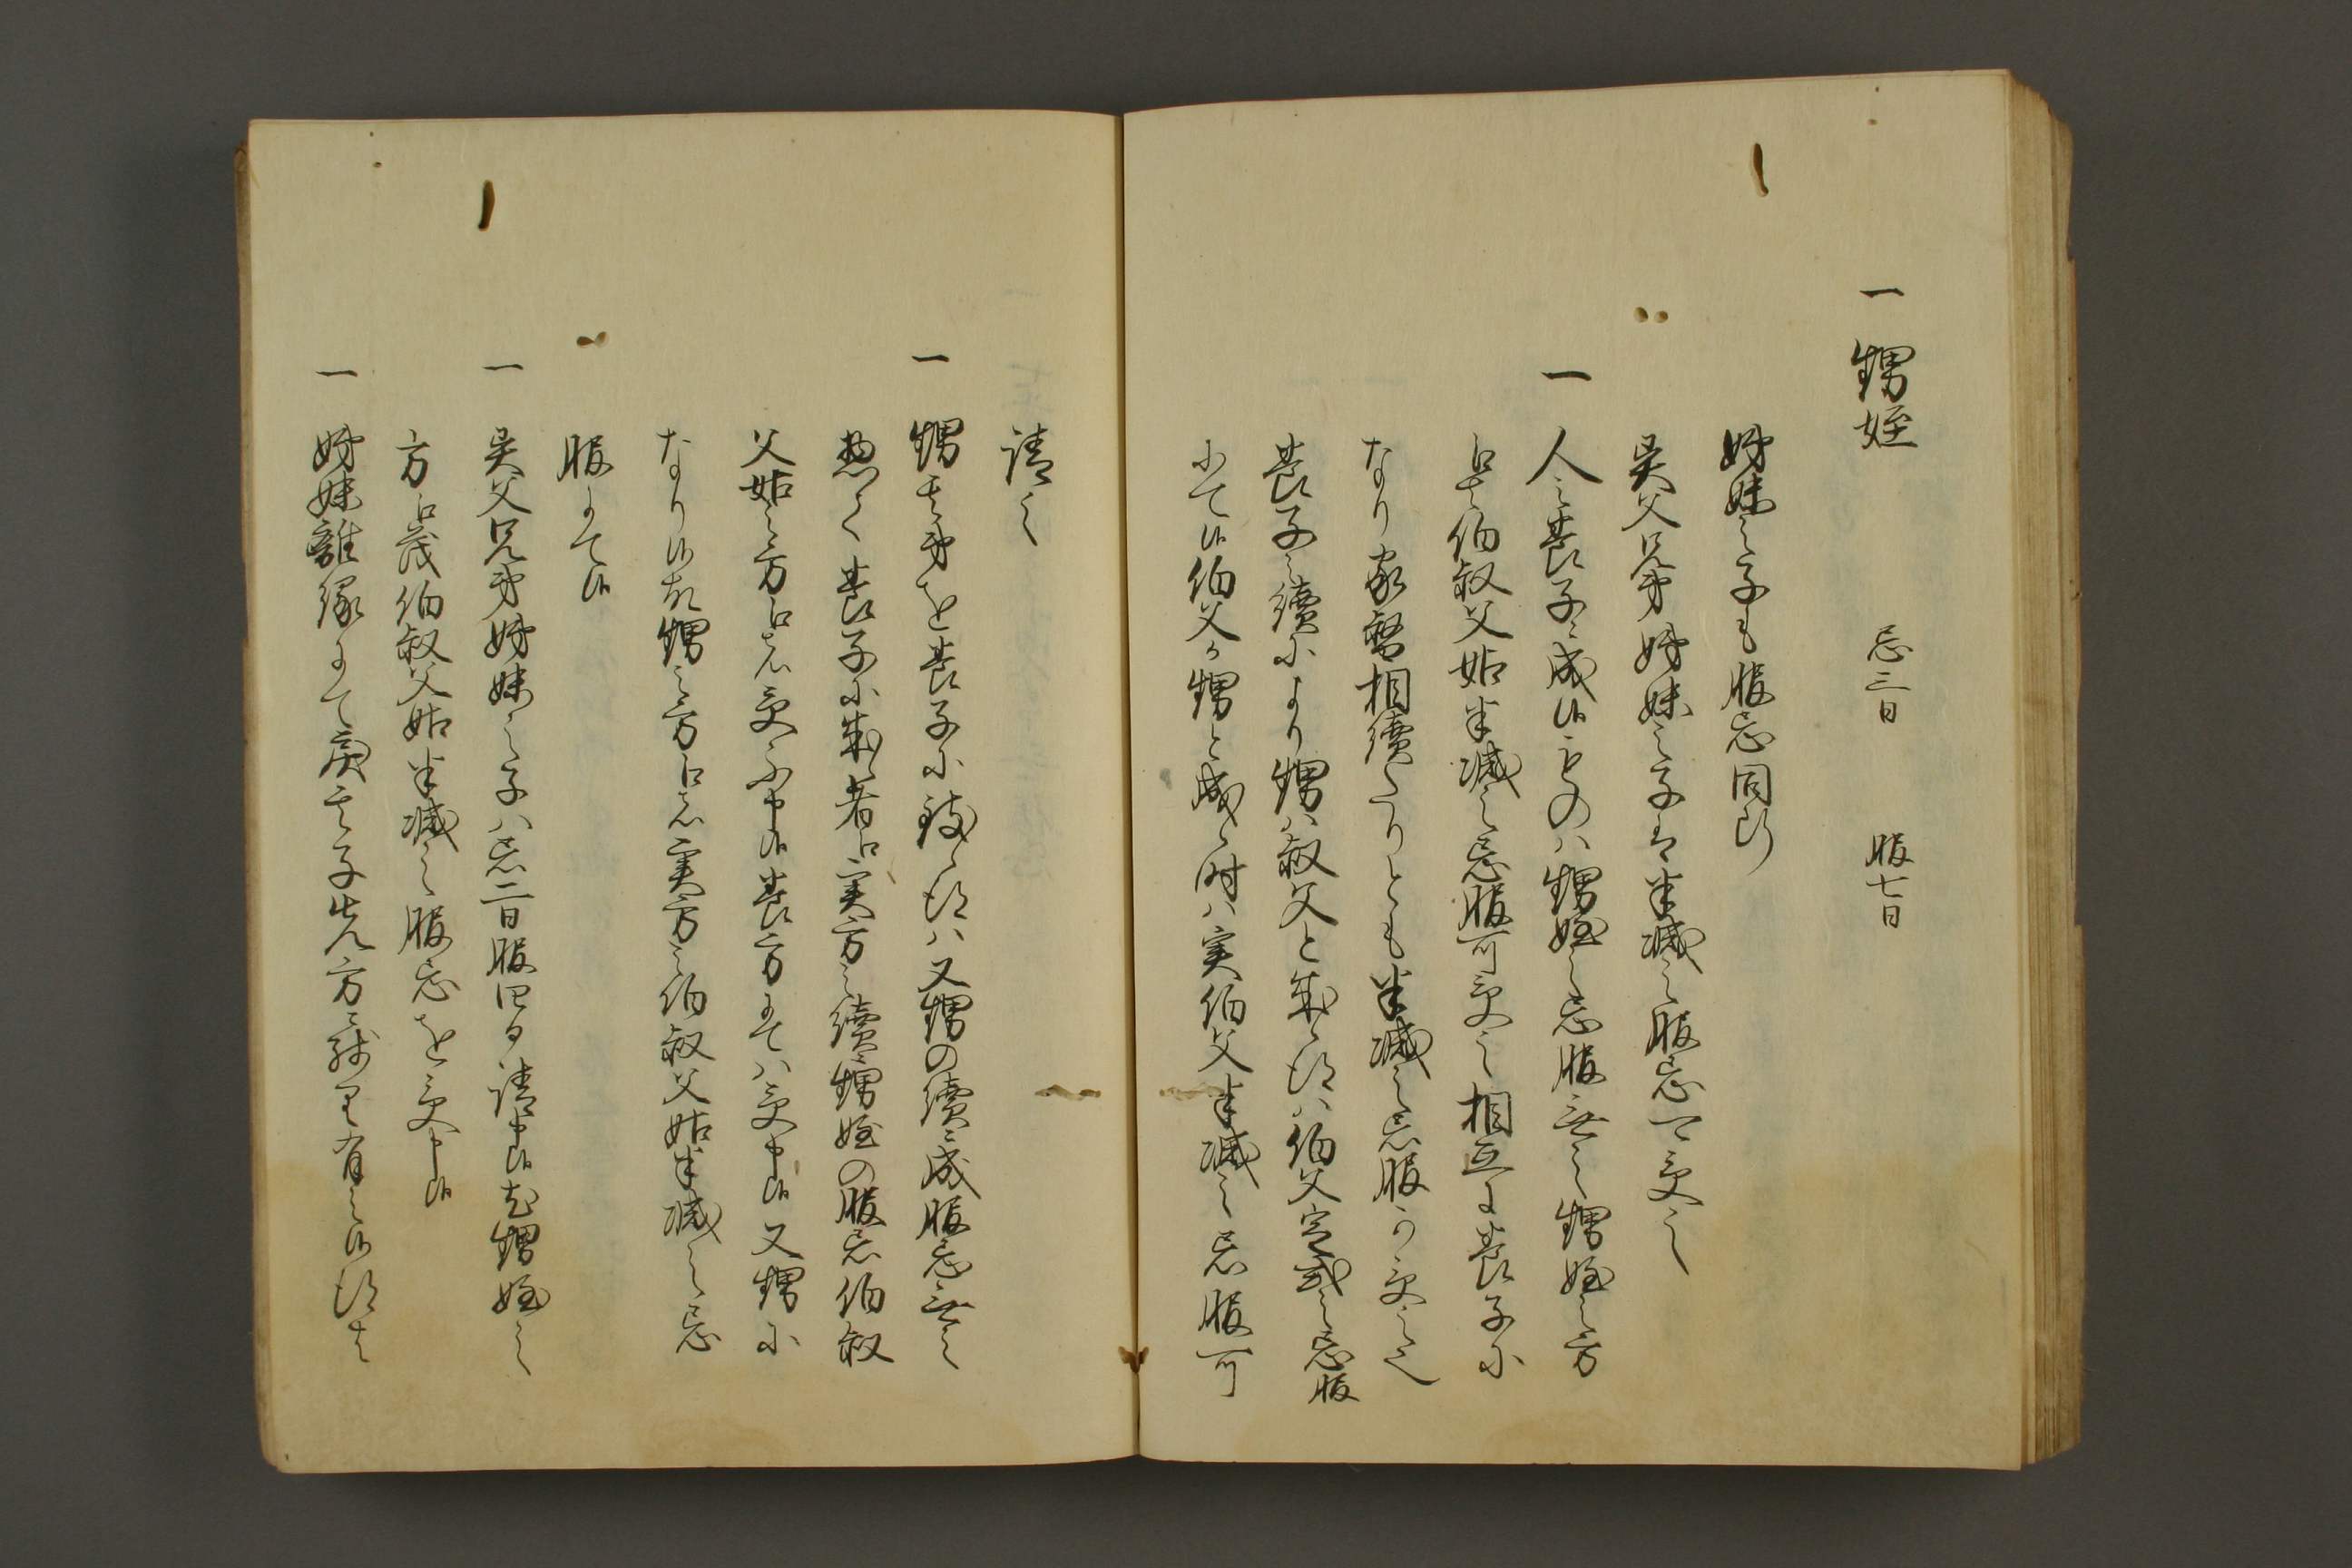 一 甥姪 忌三日 服七日
姉妹之子も服忌同断
異父兄弟姉妹之子も半減之服忌可受之
一 人之養子ニ成候ものハ甥姪之忌服無之甥姪之方
ゟ其伯叔父姑半減之忌服可受之相互ニ養子ニ
なり家督相続たりとも半減之忌服可受之也
養子之續により甥ハ叔父と成候得ハ伯父定式之忌服
にて候伯父か甥と成候時ハ実伯父半減之忌服可
請之
一 甥其弟を養子に致候得ハ又甥の續ニ成服忌無之
惣て養子に成候者ゟ実方之續甥姪の服忌伯叔
父姑之方ゟハ受不申候養方にてハ受申候又甥に
なり候故甥之方ゟハ実方之伯叔父姑半減之忌
服にて候
一 異父兄弟姉妹之子ハ忌二日服四日請申候尤甥姪之
方ゟ茂伯叔父姑半減之服忌を受申候
一 姉妹離縁にて戻其子先方ニ残り有之候得は